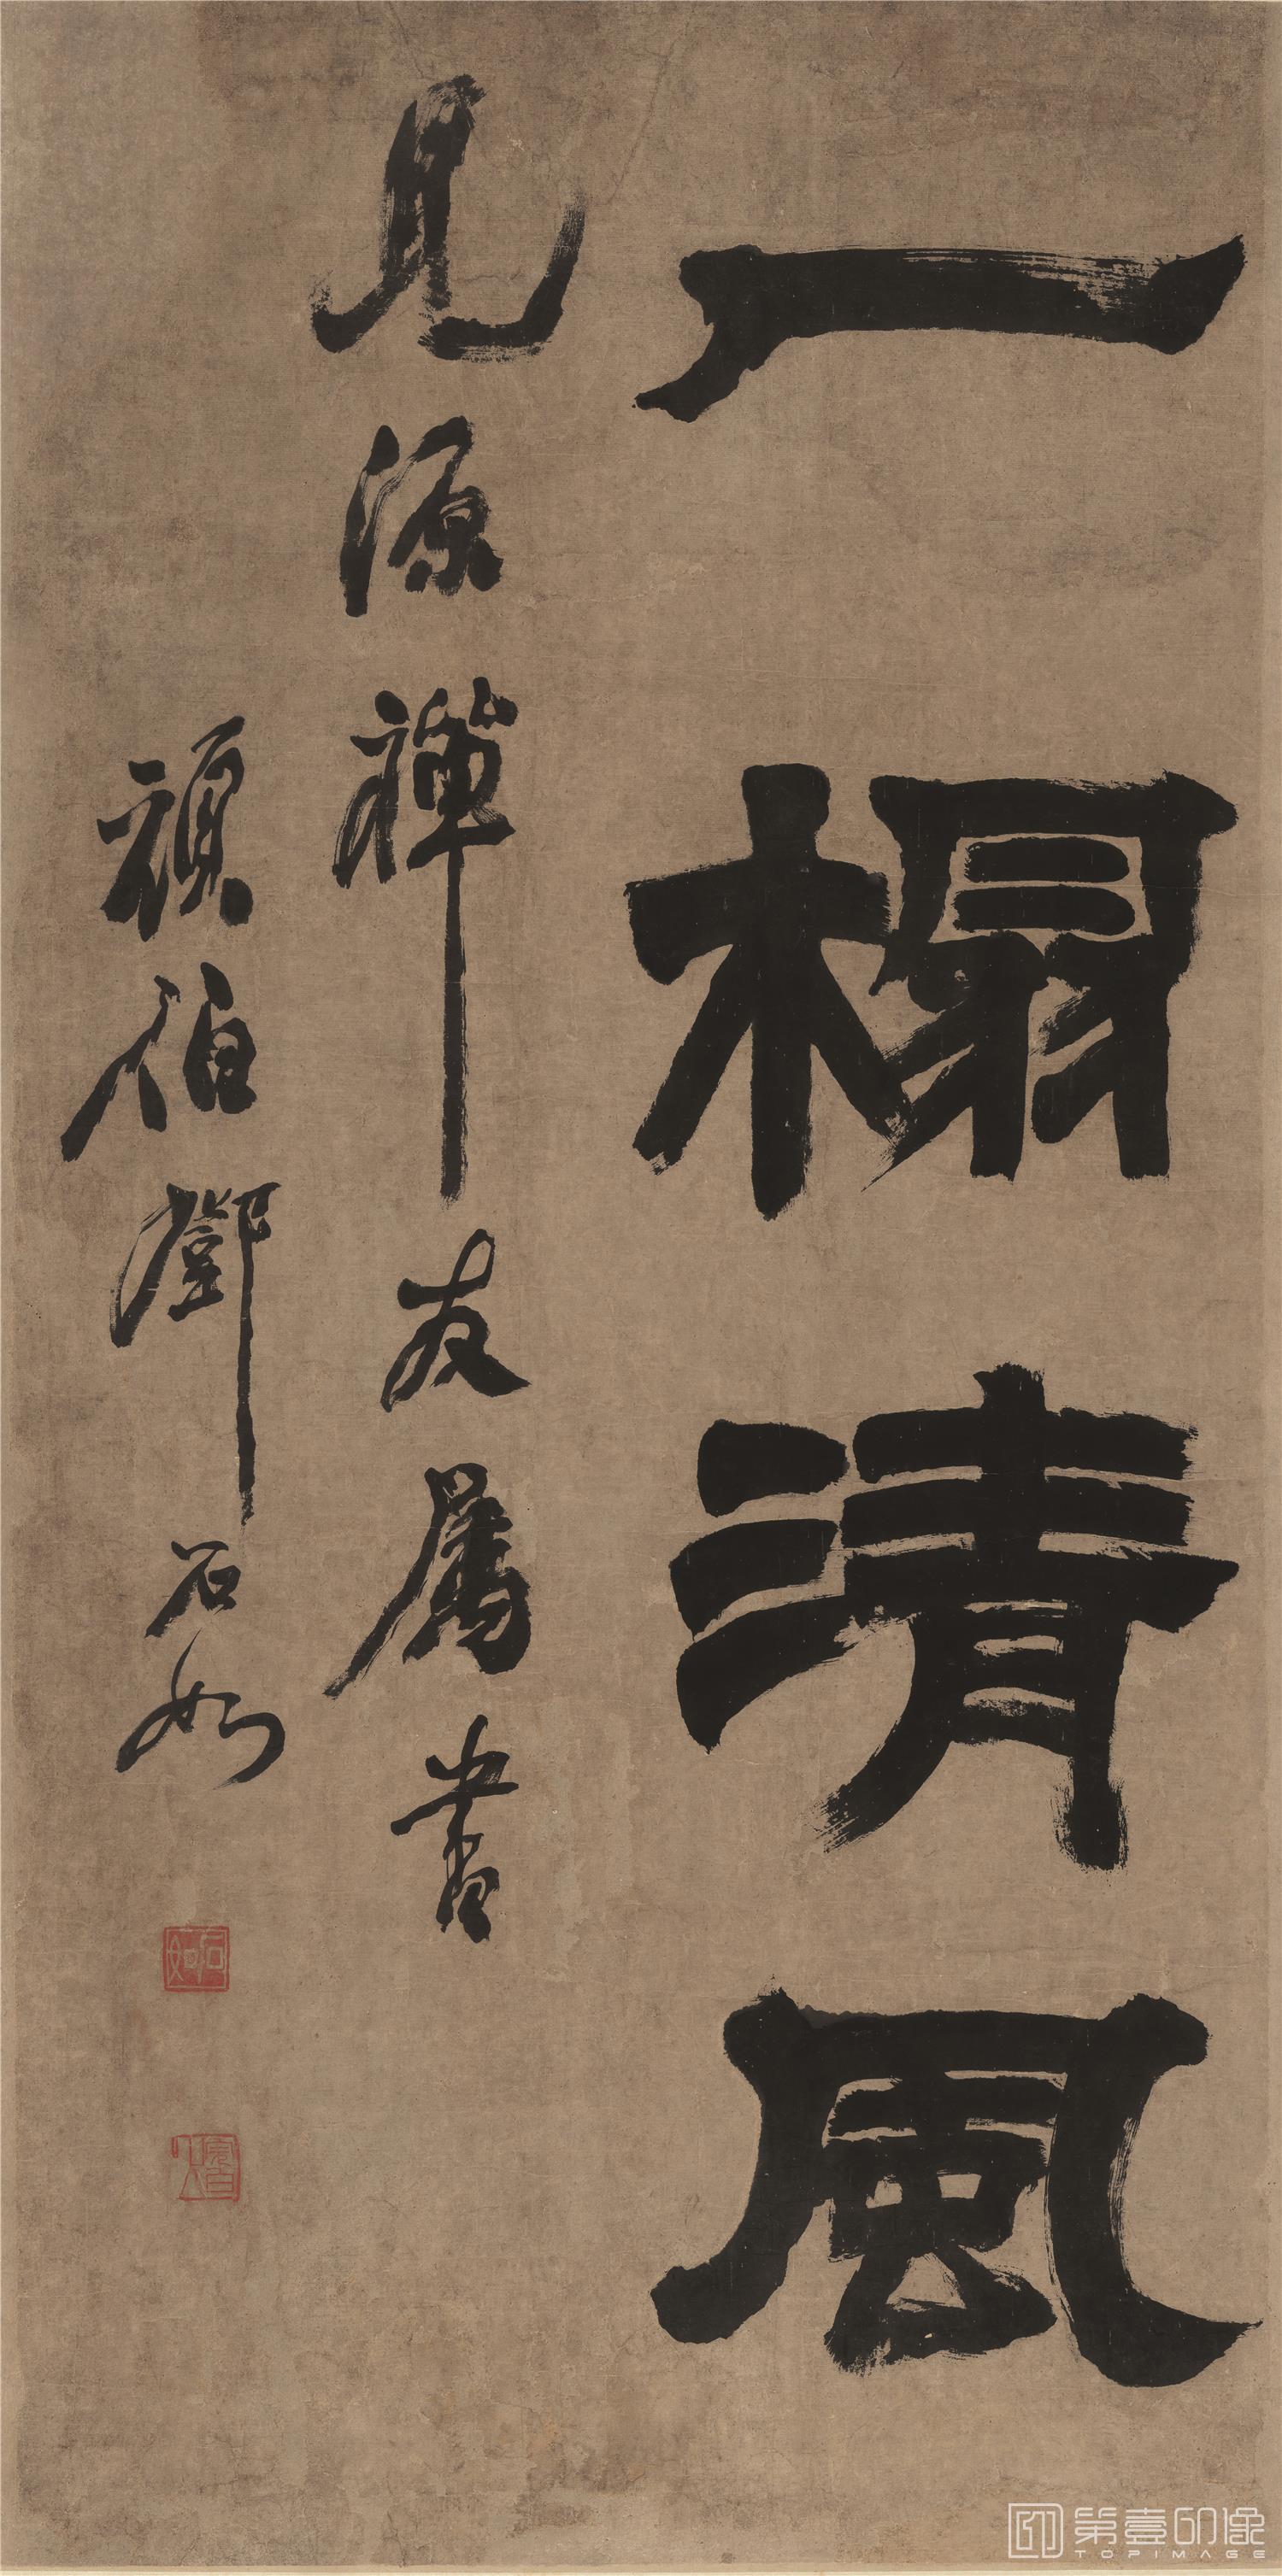 一榻清風
見源禪友屬書
頑伯鄧石如
石如
完白
第壹印像
TOPIMAGE